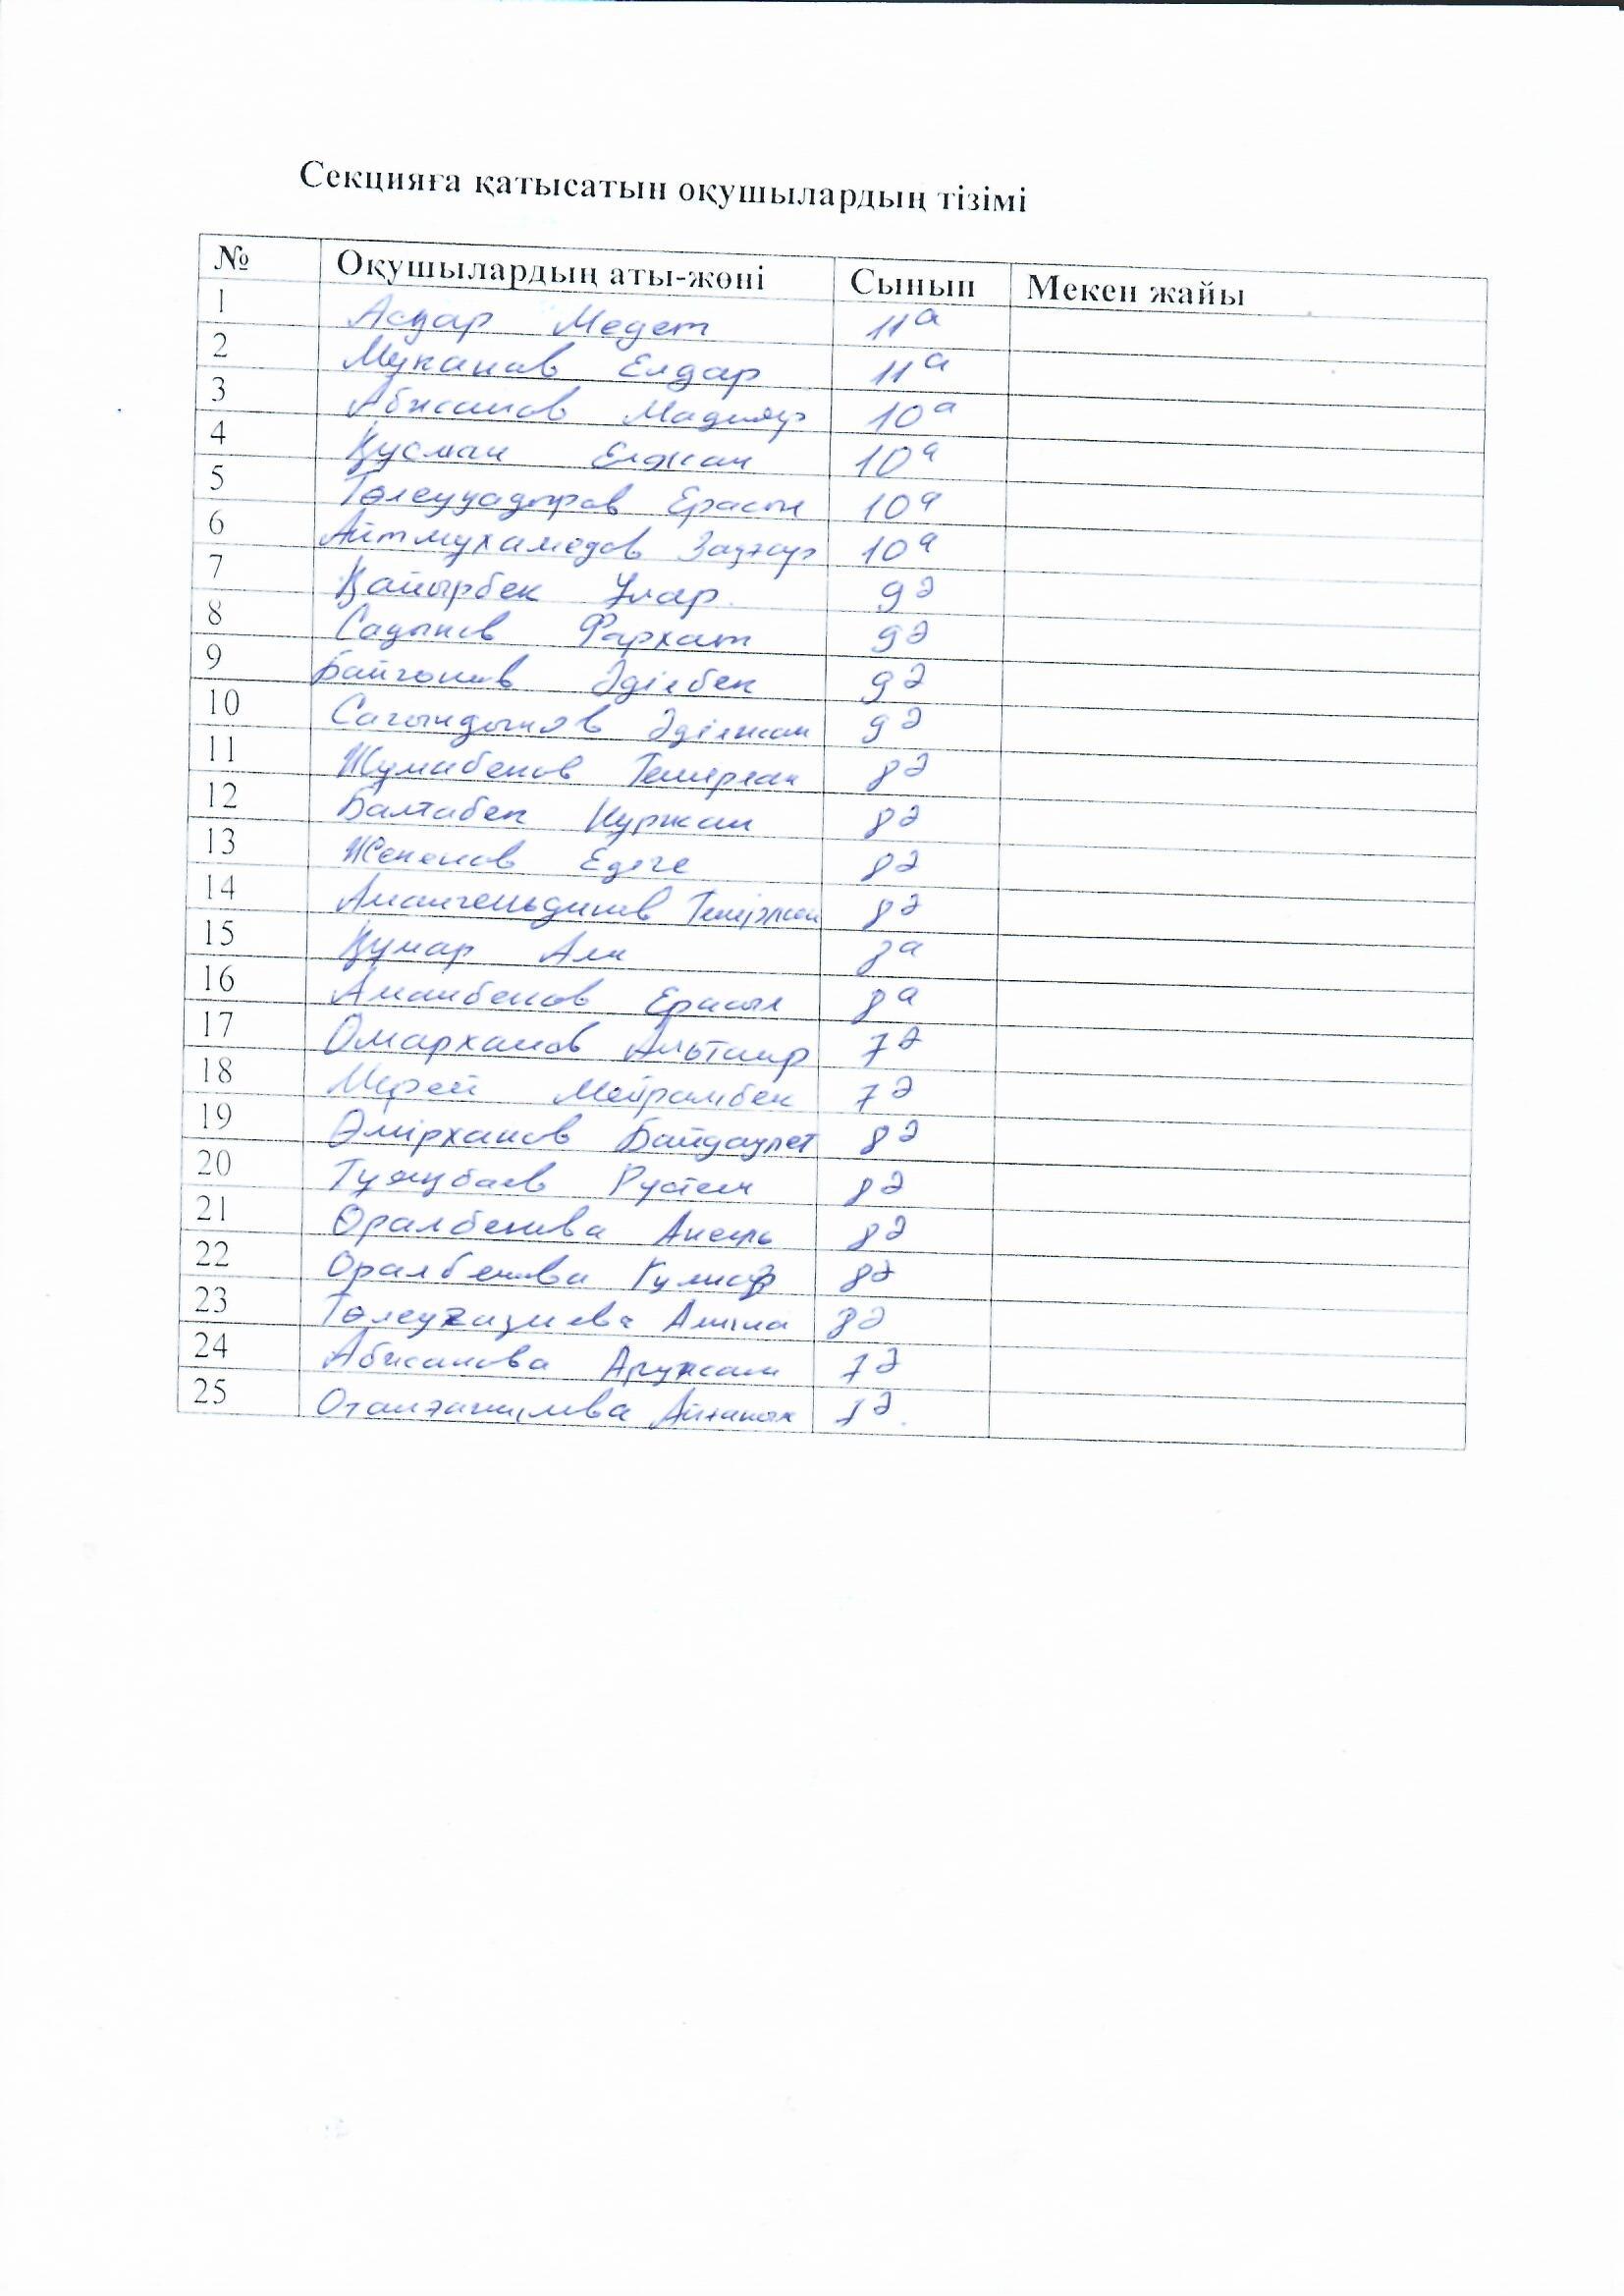 Секцияға қатысатын оқушылардың тізімі
№ Оқушылардың аты-жөні Сынып Мекен жайы
1 Асқар Медет 11а
2 Муканов Елдар 11а
3 Абжанов Мадияр 10а
4 Құсман Елжан 10а
5 Төлеуқадыров Ерасыл 10а
6 Айтмухамедов Заңғар 10а
7 Қайырбек Ұлар 9ә
8 Садыков Фархат 9ә
9 Байгонов Әділбек 9ә
10 Сагындыков Әділжан 9ә
11 Жумабеков Темирлан 8ә
12 Балтабек Нуржан 8ә
13 Жекенов Едіге 8ә
14 Амангельдинов Теміржан 8ә
15 Құмар Али 8а
16 Аманбеков Ерасыл 8а
17 Омарханов Альтаир 7ә
18 Мерей Мейрамбек 7ә
19 Әмірханов Байдаулет 8ә
20 Тұяқбаев Рустем 8ә
21 Оралбекова Аисель 8ә
22 Оралбекова Гулназ 8ә
23 Төлеуғазиева Амина 8ә
24 Абжанова Аружан 7ә
25 7ә